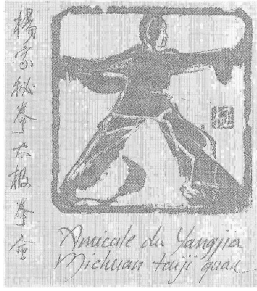 楊家秘太極拳會
Amicale du Yangjia
Michuan taiji quan